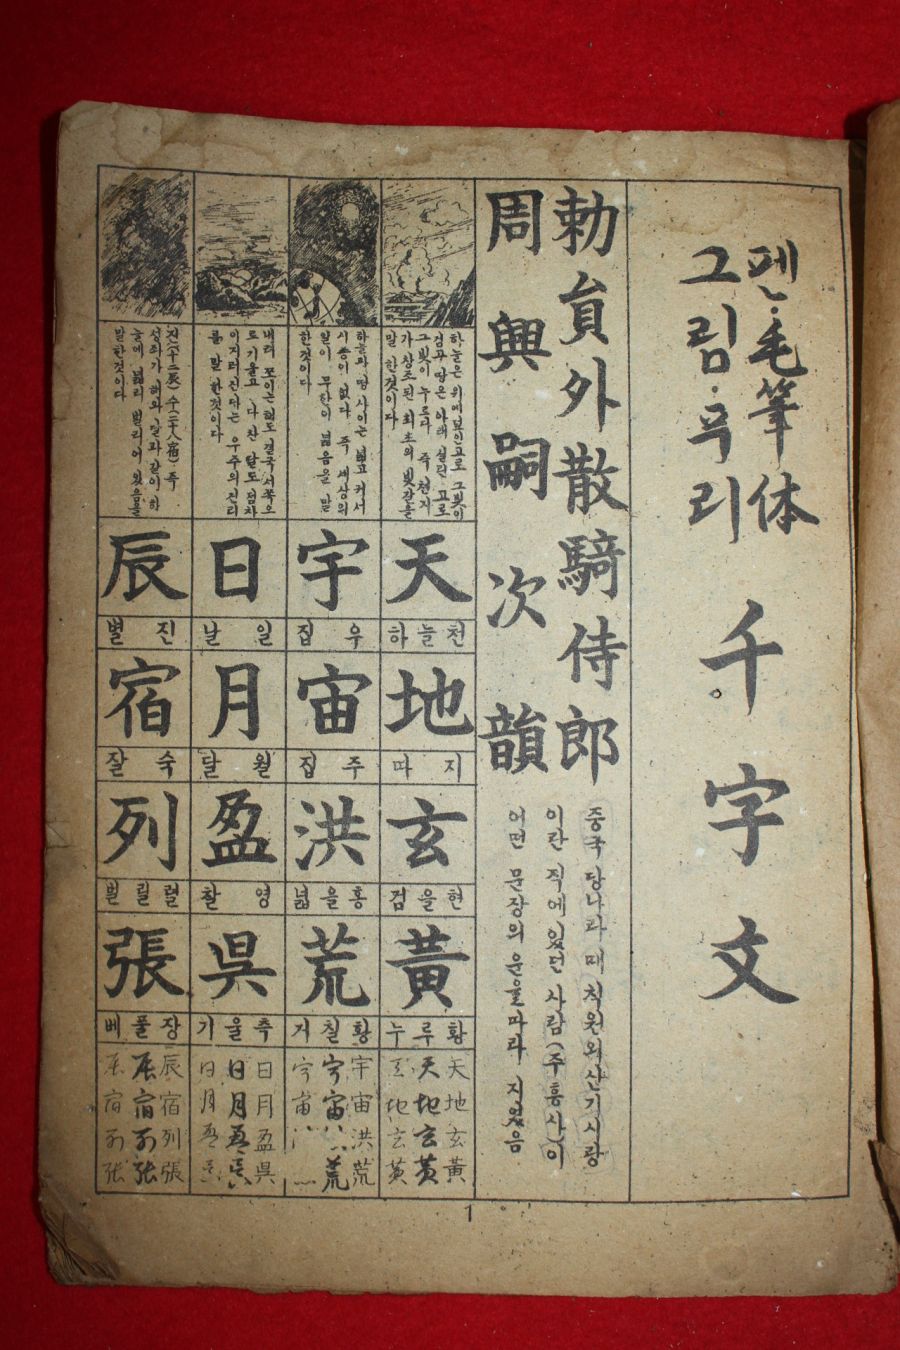 펜·毛筆体
그림·푸리
千字文
勅員外散騎侍郎
周興嗣次韻
중국 당나라 때 칙원외산기시랑
이란 직에있던 사람(주흥사)이
어떤 문장의 운을따라 지었음
하늘은 위에보인고로 그빛이
검꾸 땅은 아래 실린 고로
그빛이 누르다 즉 천지
가 창조된 최초의 빛갈을
말한것이다
天
하늘천
地
따 지
玄
검을현
黃
누루황
天地玄黃
天地玄黃
天地玄黃
하늘과 땅 사이는 넓고 커서
시종이 없다 즉 세상의
일이 무한이 넓음을 말
한것이다
宇
집 우
宙
집 주
洪
넓을홍
荒
거칠황
宇宙洪荒
宇宙洪荒
내려 쪼이는 해도 결국 서쪽으
로 기울고 다 찬 달도 점차
이지러진다는 우주의 진리
를 말한것이다
日
날 일
月
달 월
盈
찰 영
昗
기울측
日月盈昗
日月盈昗
日月盈昗
진(十二辰) 수(二十八宿) 즉
성좌가 해와 달과 같이 하
늘에 넓리 벌리어 있음을
말한것이다
辰
별 진
宿
잘 숙
列
벌릴렬
張
베풀장
辰宿列張
辰宿列張
辰宿列張
1